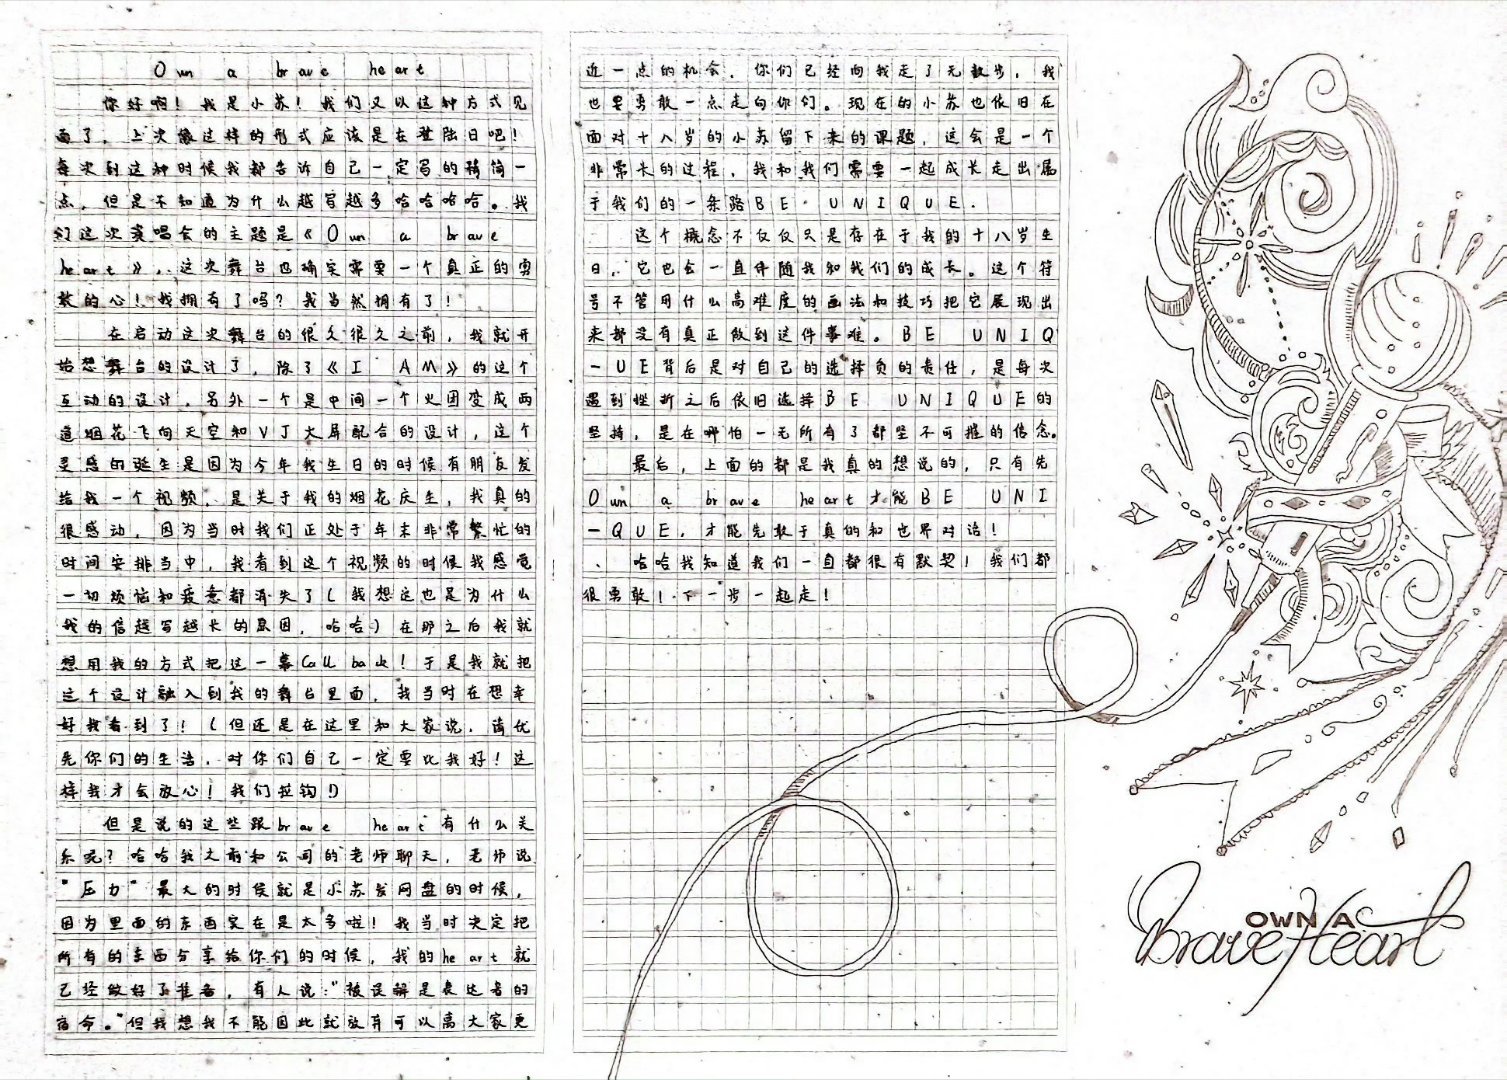 Own a brave heart
你好啊！我是小苏！我们又以这种方式见
面了，上次像这样的形式应该是在登陆日吧！
每次到这种时候我都告诉自己一定写的精简一
点，但是不知道为什么越写越多哈哈哈哈。我
们这次演唱会的主题是《Own a brave
heart》，这次舞台也确实需要一个真正的勇
敢的心！我拥有了吗？我当然拥有了！
在启动这次舞台的很久很久之前，我就开
始想舞台的设计了，除了《I AM》的这个
互动的设计，另外一个是中间一个火团变成两
道烟花飞向天空和VJ大屏配合的设计，这个
灵感的诞生是因为今年我生日的时候有朋友发
给我一个视频，是关于我的烟花庆生，我真的
很感动，因为当时我们正处于年末非常繁忙的
时间安排当中，我看到这个视频的时候我感觉
一切烦恼和疲惫都消失了（我想这也是为什么
我的信越写越长的原因，哈哈）在那之后我就
想用我的方式把这一幕Call back！于是我就把
这个设计融入到我的舞台里面，我当时在想幸
好我看到了！（但还是在这里和大家说，请优
先你们的生活，对你们自己一定要比我好！这
样我才会放心！我们拉钩！）
但是说的这些跟brave heart有什么关
系呢？哈哈我之前和公司的老师聊天，老师说
“压力”最大的时候就是小苏发网盘的时候，
因为里面的东西实在是太多啦！我当时决定把
所有的东西分享给你们的时候，我的heart就
已经做好了准备，有人说：“被误解是表达者的
宿命。”但我想我不能因此就放弃可以离大家更
近一点的机会，你们已经向我走了无数步，我
也要勇敢一点走向你们。现在的小苏也依旧在
面对十八岁的小苏留下来的课题，这会是一个
非常长的过程，我和我们需要一起成长走出属
于我们的一条路BE·UNIQUE.
这个概念不仅仅只是存在于我的十八岁生
日，它也会一直伴随我和我们的成长。这个符
号不管用什么高难度的画法和技巧把它展现出
来都没有真正做到这件事难。BE UNIQ
-UE背后是对自己的选择负的责任，是每次
遇到挫折之后依旧选择BE UNIQUE的
坚持，是在哪怕一无所有了都坚不可摧的信念。
最后，上面的都是我真的想说的，只有先
Own a brave heart才能BE UNI
-QUE，才能先敢于真的和世界对话！
哈哈我知道我们一直都很有默契！我们都
很勇敢！下一步一起走！
OWN A
Brave Heart